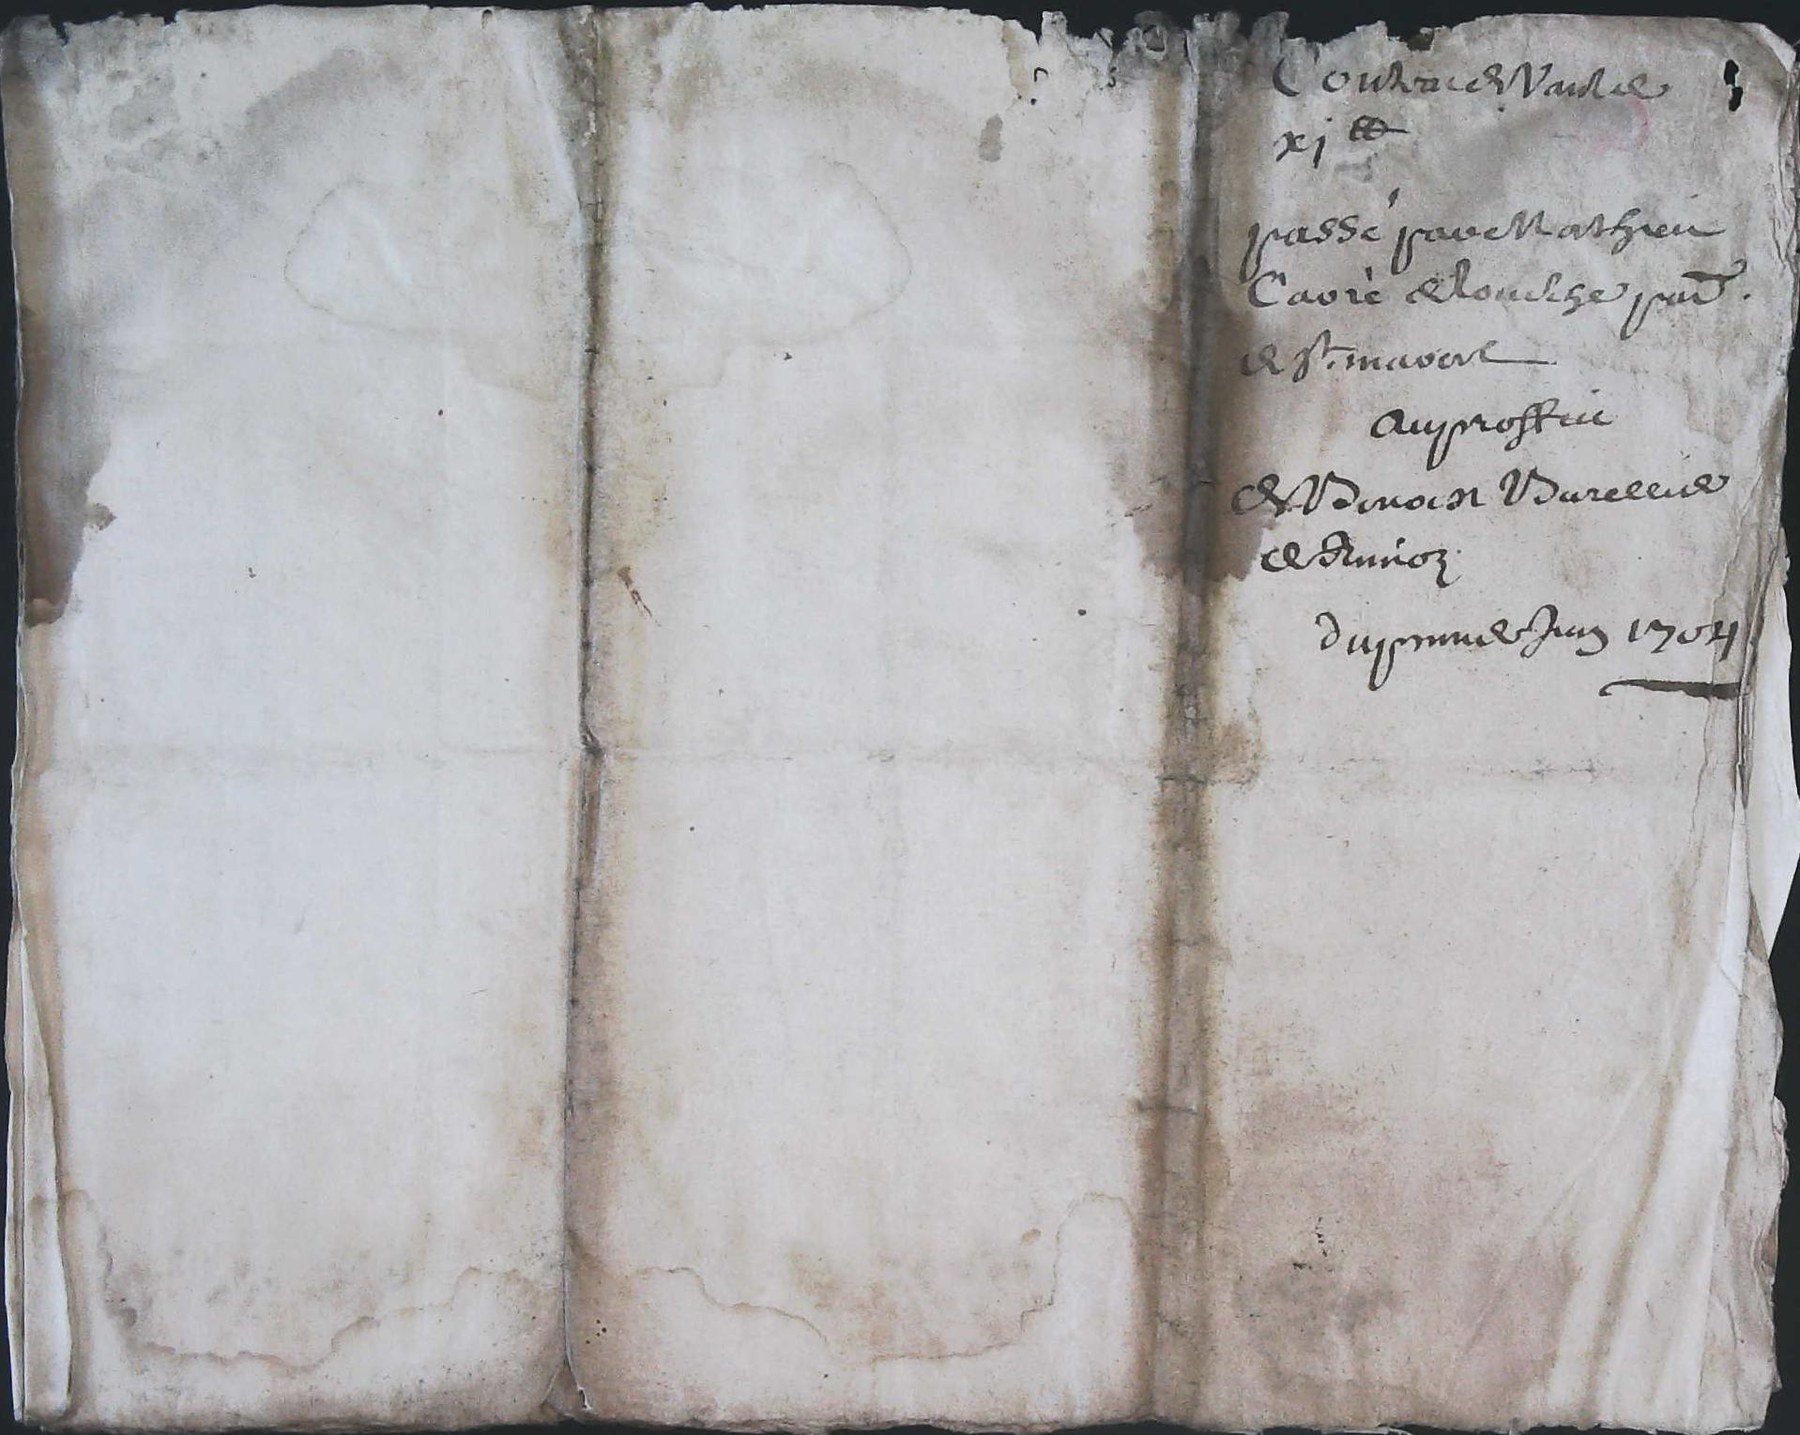 Contract de Vante
xj ll
passé par Mathieu
Cavrè de louche par.
de st. mavere
Au proffit
de Benoist Burellie
de
du prim. de Juin 1704